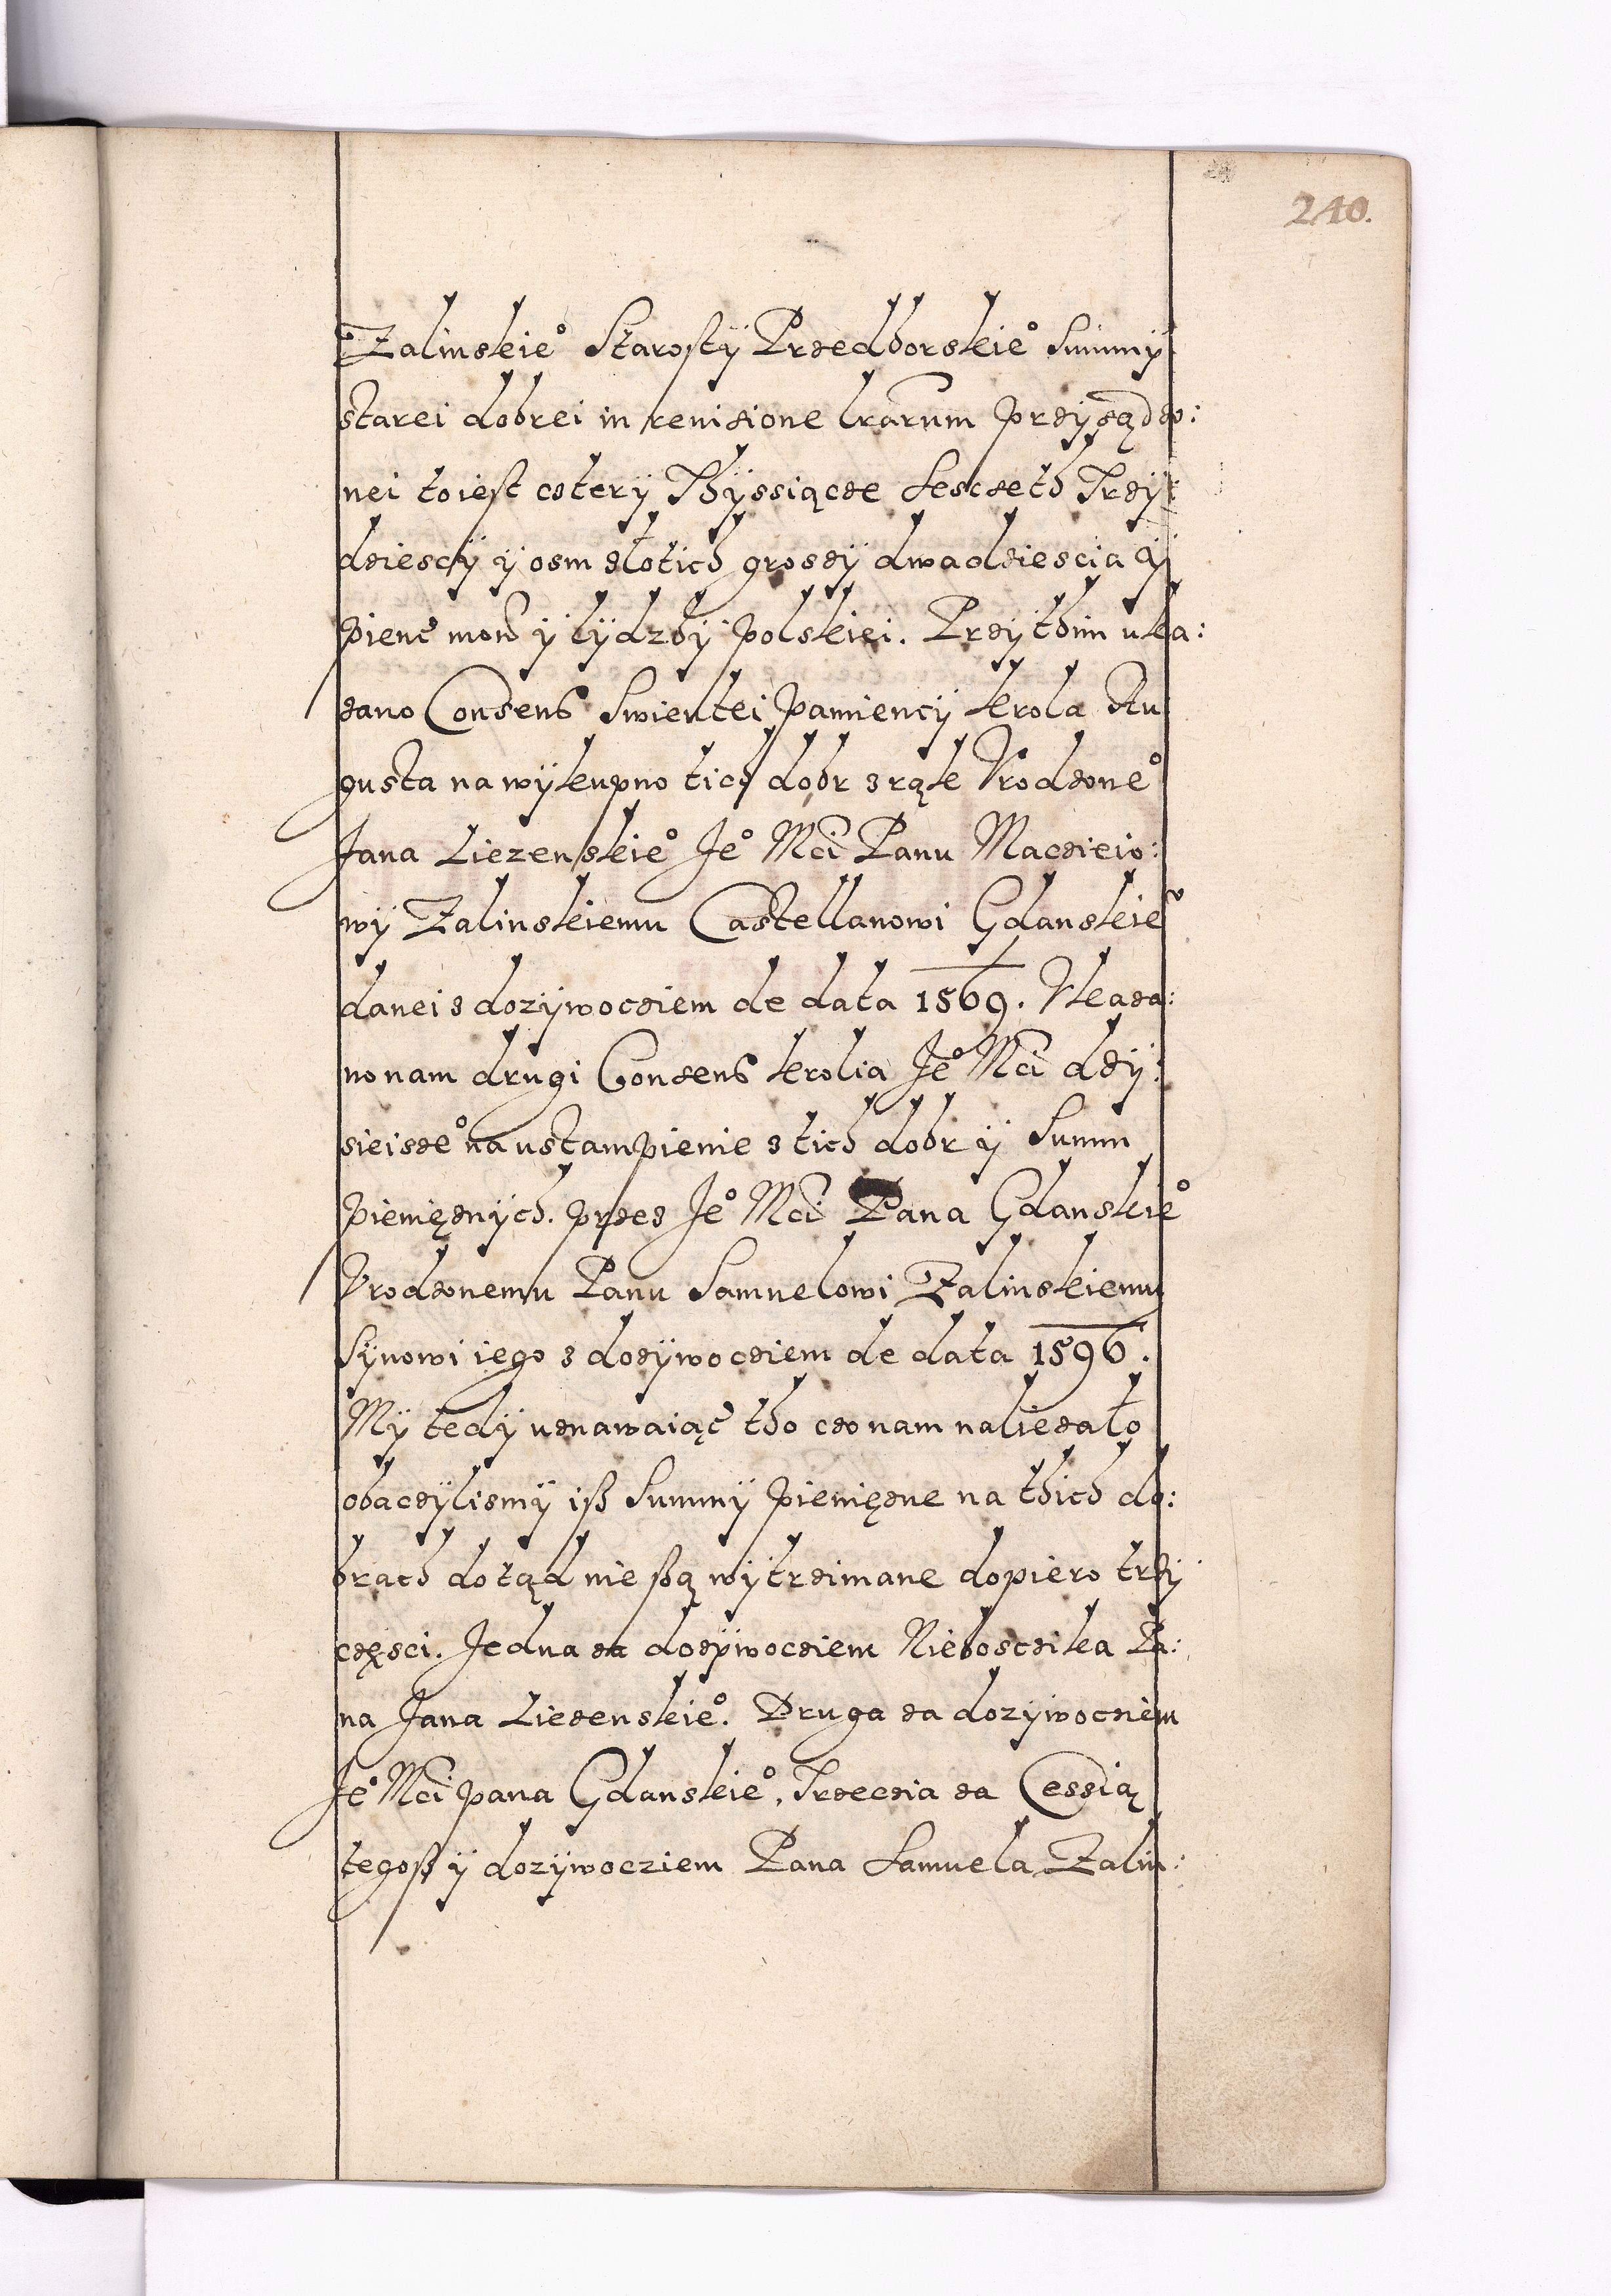 240.
Zalinskie° Starosty Przedborskie° Summy
starei dobrei in revisione lrarum przysądzo:
nei to iest cztery Thyssiącze Sesczeth Trzy:
dziescy y osm zlotich groszy dwadziescia y
pienć mon̄ y lydzby polskiei. Przy thim uka:
zano Consens Swientei Pamiency krola Au
gusta na wykupno tich dobr z rąk Vrodzone°
Jana Liezenskie° Je° Mci Panu Maczieio:
wy Zalinskiemu Castellanowi Gdanskieᵛ
danei z dozywocziem de data 1569. Vkaza:
no nam drugi Consens krolia Je° Mci dzy:
sieisze° na ustampienie z tich dobr y Summ
pieniężnych. przez Je° Mci Pana Gdanskie°
Vrodzonemu Panu Samuelowi Zalinskiemu
Synowi iego z dozywocziem de data 1596.
My tedy uznawaiąc tho czo nam naliezało
obaczylismy iß Summy pieniężne na thich do:
brach dotąd nie są wytrzimane dopiero trzy
częsci. Jedna za dozywocziem Nieboscika Pa:
na Jana Liezenskie°. Druga za dozywocziem
Je° Mci pana Gdanskie°. Trzeczia za Cessią
tegoß y dozywocziem Pana Samuela Zalin: